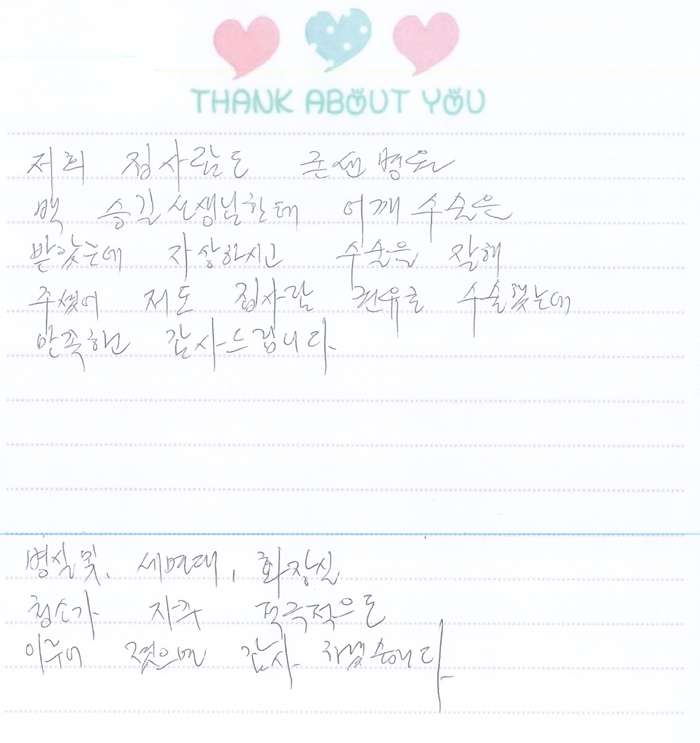 THANK ABOUT YOU
저희 집사람도 굳센병원
백 승길선생님한테 어깨수술은
받았는데 자상하시고 수술을 잘해
주셨어 저도 집사람 권유로 수술했는데
만족한 감사드립니다.
병실및, 세면대, 화장실
청소가 자주 적극적으로
이루어 졌으면 감사. 하겠습니다.